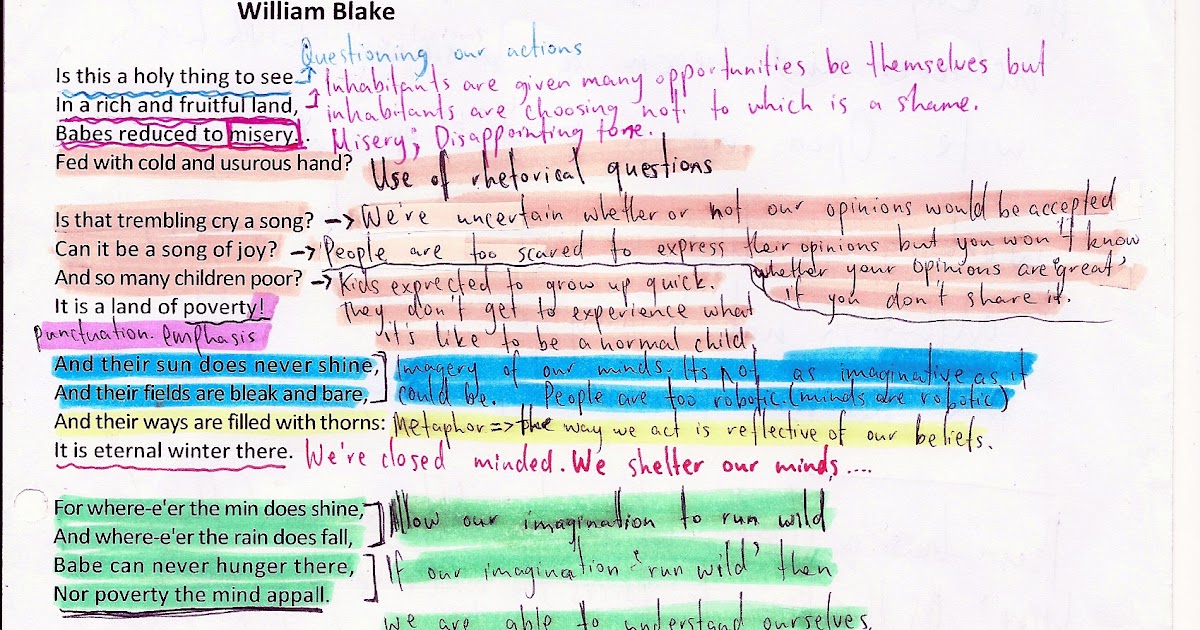 William Blake
Questioning our actions
Is this a holy thing to see
Inhabitants are given many opportunities be themselves but
In a rich and fruitful land,
inhabitants are choosing not to which is a shame.
Babes reduced to misery.
Misery; Disappointing tone.
Fed with cold and usurous hand?
Use of rhetorical questions
Is that trembling cry a song? → We're uncertain whether or not our opinions would be accepted
Can it be a song of joy? → People are too scared to express their opinions but you won't know
whether your opinions are 'great'
if you don't share it.
And so many children poor? → Kids exprected to grow up quick.
They don't get to experience what
it's like to be a normal child.
It is a land of poverty!
punctuation. emphasis
And their sun does never shine, Imagery of our minds. Its not as imaginative as it
And their fields are bleak and bare, could be. People are too robotic. (minds are robotic)
And their ways are filled with thorns: Metaphor => the way we act is reflective of our beliefs.
It is eternal winter there. We're closed minded. We shelter our minds....
For where-e'er the min does shine,
And where-e'er the rain does fall,
Allow our imagination to run wild
Babe can never hunger there,
Nor poverty the mind appall.
If our imagination 'run wild' then
we are able to understand ourselves.